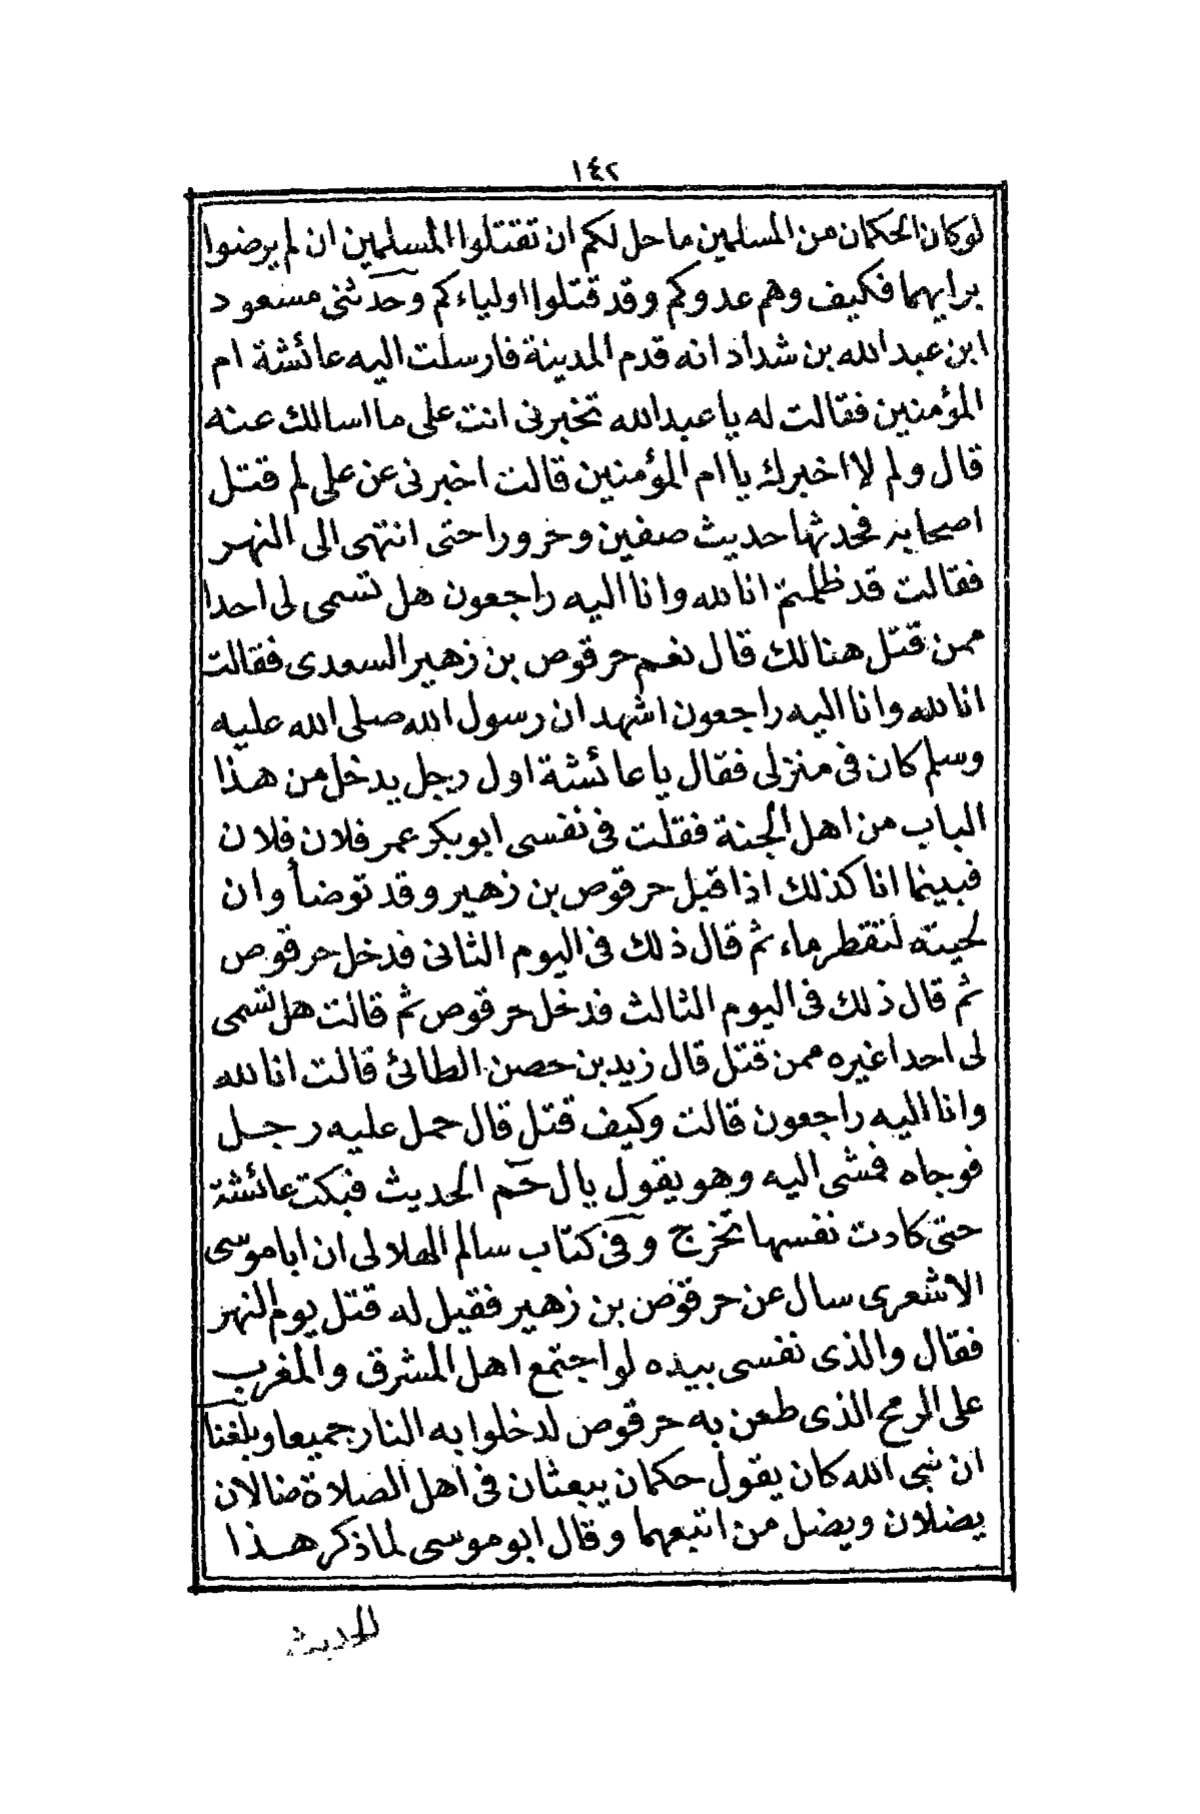 ١٤٢
لو كان الحكمان من المسلمين ما حل لكم ان تقتلوا المسلمين ان لم يرضوا
برايهما فكيف وهم عدوكم وقد قتلوا اولياءكم وحدثنى مسعود
ابن عبد الله بن شداد انه قدم المدينة فارسلت اليه عائشة ام
المؤمنين فقالت له يا عبد الله تخبرنى انت على ما اسالك عنه
قال ولم لا اخبرك يا ام المؤمنين قالت اخبرنى عن على لم قتل
اصحابه فحدثها حديث صفين وحرورا حتى انتهى الى النهر
فقالت قد ظلمتم انا لله وانا اليه راجعون هل تسمى لى احدا
ممن قتل هنالك قال نعم حرقوص بن زهير السعدى فقالت
انا لله وانا اليه راجعون اشهد ان رسول الله صلى الله عليه
وسلم كان فى منزلى فقال يا عائشة اول رجل يدخل من هذا
الباب من اهل الجنة فقلت فى نفسى ابو بكر عمر فلان فلان
فبينما انا كذلك اذا قبل حرقوص بن زهير وقد توضأ وان
لحيته لتقطر ماء ثم قال ذلك فى اليوم الثانى فدخل حرقوص
ثم قال ذلك فى اليوم الثالث فدخل حرقوص ثم قالت هل تسمى
لى احدا غيره ممن قتل قال زيد بن حصن الطائئ قالت انا لله
وانا اليه راجعون قالت وكيف قتل قال حمل عليه رجل
فوجاه فمشى اليه وهو يقول يال حم الحديث فبكت عائشة
حتى كادت نفسها تخرج وفى كتاب سالم الهلالى ان ابا موسى
الاشعرى سال عن حرقوص بن زهير فقيل له قتل يوم النهر
فقال والذى نفسى بيده لو اجتمع اهل المشرق والمغرب
على الرمح الذى طعن به حرقوص لدخلوا به النار جميعا وبلغنا
ان نبى الله كان يقول حكمان يبعثان فى اهل الصلاة ضالان
يضلان ويضل من اتبعهما وقال ابو موسى لما ذكر هذا
الحديث